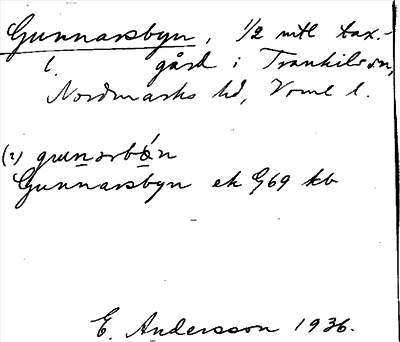 Gunnarsbyn, 1/2 mtl tax.-
l. gård i Trankils sn,
Nordmarks hd, Vrml l.
(2) gunarbǿn
Gunnarsbyn ek G69 kb
E. Andersson 1936.